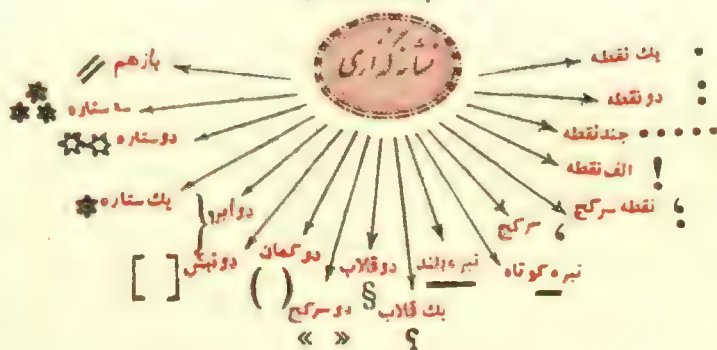 نشانه گذاری
یک نقطه .
دو نقطه :
چند نقطه .....
الف نقطه !
نقطه سرکج ؛
سرکج ،
نیره کوتاه —
نیره بلند —
یک قلاب ؟
دو قلاب §
دو سرکج « »
دو کمان ( )
دو نبش [ ]
دو ابرو {
یک ستاره *
دو ستاره **
سه ستاره ***
بازهم //